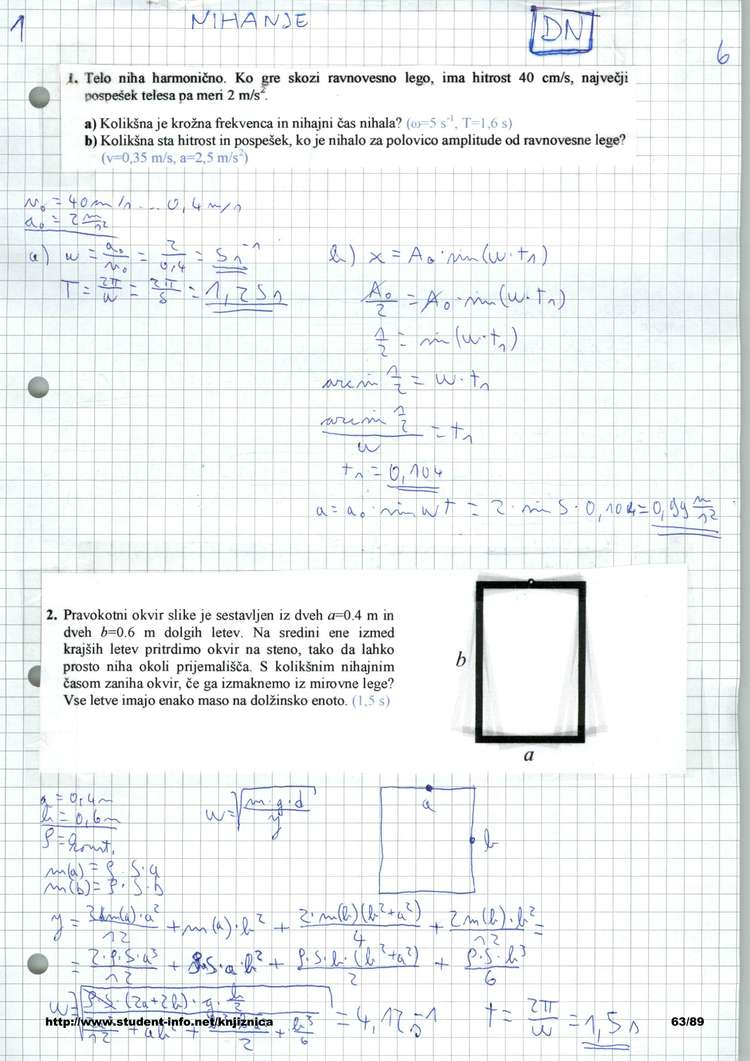 1
NIHANJE
DN
6
1. Telo niha harmonično. Ko gre skozi ravnovesno lego, ima hitrost 40 cm/s, največji
pospešek telesa pa meri 2 m/s².
a) Kolikšna je krožna frekvenca in nihajni čas nihala? (ω=5 s⁻¹, T=1,6 s)
b) Kolikšna sta hitrost in pospešek, ko je nihalo za polovico amplitude od ravnovesne lege?
(v=0,35 m/s, a=2,5 m/s²)
a₀ = 2 m/s²
a) ω = a₀/v₀ = 2/0,4 = 5 s⁻¹
T = 2π/ω = 2π/5 = 1,25 s
b) x = A₀ · sin(ω · t₁)
A₀/2 = A₀ · sin(ω · t₁)
1/2 = sin(ω · t₁)
arcsin 1/2 = ω · t₁
arcsin 1/2 / ω = t₁
t₁ = 0,104
a = a₀ · sin ωt = 2 · sin 5 · 0,104 = 0,99 m/s²
2. Pravokotni okvir slike je sestavljen iz dveh a=0.4 m in
dveh b=0.6 m dolgih letev. Na sredini ene izmed
krajših letev pritrdimo okvir na steno, tako da lahko
prosto niha okoli prijemališča. S kolikšnim nihajnim
časom zaniha okvir, če ga izmaknemo iz mirovne lege?
Vse letve imajo enako maso na dolžinsko enoto. (1,5 s)
b
a
a = 0,4 m
b = 0,6 m
ρ = konst.
m(a) = ρ · S · a
m(b) = ρ · S · b
ω = √(m · g · d / J)
a
b
= 2·ρ·S·a³/12 + ρ·S·a·b² + ρ·S·b·(b²+a²)/2 + ρ·S·b³/6
= 4,12 s⁻¹
t = 2π/ω = 1,5 s
http://www.student-info.net/knjiznica
63/89